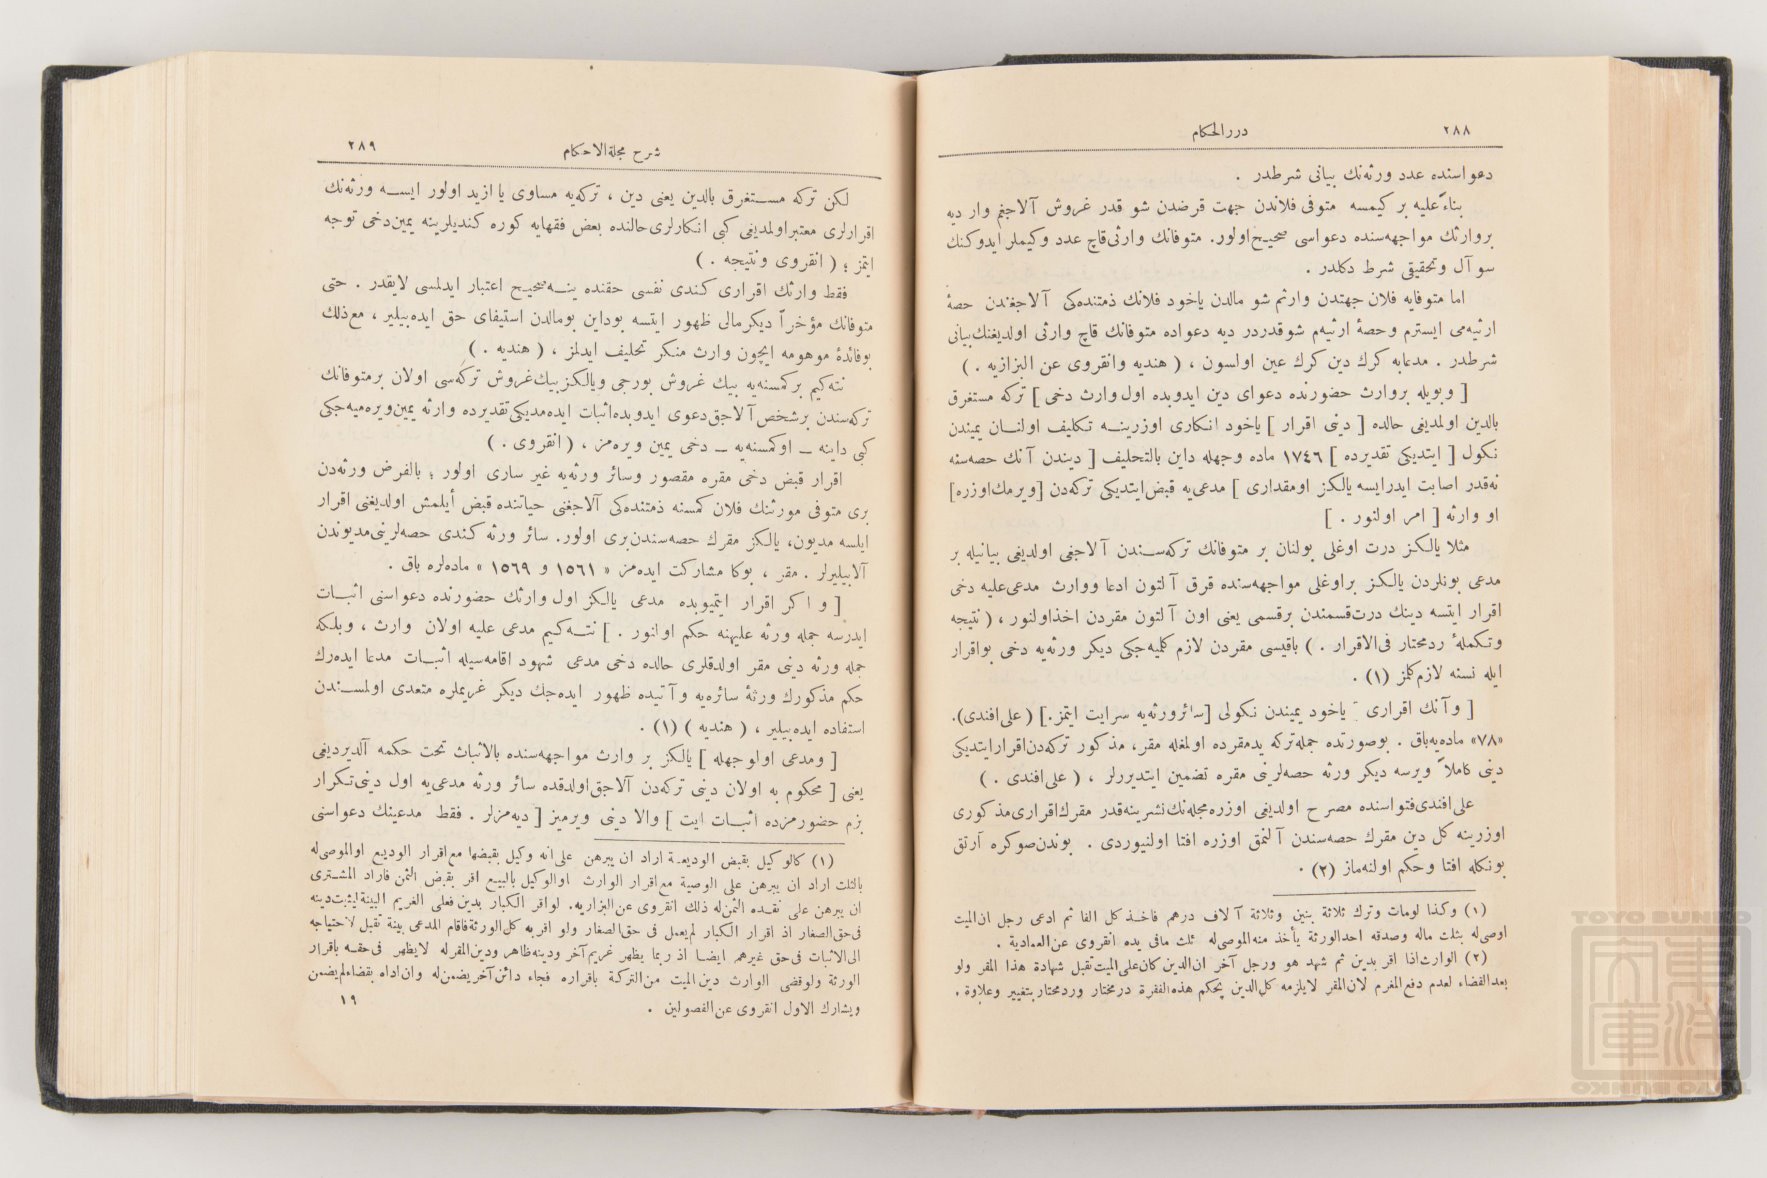 ٢٨٨
درر الحكام
دعواسنده عدد ورثه‌نك بيانى شرطدر .
بناءً عليه بر كيمسه متوفى فلاندن جهت قرضدن شو قدر غروش آلاجغم وار ديه
بر وارثك مواجهه‌سنده دعواسى صحيح اولور. متوفانك وارثى قاچ عدد وكيملر ايدوكنك
سو آل وتحقيقى شرط دكلدر .
اما متوفايه فلان جهتدن وارثم شو مالدن ياخود فلانك ذمتنده‌كى آلاجغندن حصهٔ
ارثيه‌مى ايسترم وحصهٔ ارثيه‌م شو قدردر ديه دعواده متوفانك قاچ وارثى اولديغنك بيانى
شرطدر . مدعابه كرك دين كرك عين اولسون ، ( هنديه وانقروى عن البزازيه . )
[ وبويله بر وارث حضورنده دعواى دين ايدوبده اول وارث دخى ] تركه مستغرق
بالدين اولمديغى حالده [ دينى اقرار ] ياخود انكارى اوزرينه تكليف اولنان يميندن
نكول [ ايتديكى تقديرده ] ١٧٤٦ ماده وجهله داين بالتحليف [ ديندن آنك حصه‌سنه
نه‌قدر اصابت ايدرايسه يالكز اومقدارى ] مدعى‌يه قبض ايتديكى تركه‌دن [ويرمك اوزره]
او وارثه [ امر اولنور . ]
مثلا يالكز درت اوغلى بولنان بر متوفانك تركه‌سندن آلاجغى اولديغى بيانيله بر
مدعى بونلردن يالكز بر اوغلى مواجهه‌سنده قرق آلتون ادعا ووارث مدعى عليه دخى
اقرار ايتسه دينك درت قسمندن بر قسمى يعنى اون آلتون مقردن اخذ اولنور ، ( نتيجه
وتكملهٔ ردمختار فى الاقرار . ) باقيسى مقردن لازم كلميه‌جكى ديكر ورثه‌يه دخى بو اقرار
ايله نسنه لازم كلمز (١) .
[ وآنك اقرارى ] ياخود يميندن نكولى [سائر ورثه‌يه سرايت ايتمز.] (على افندى).
«٧٨» ماده‌يه باق . بوصورتده جمله تركه يد مقرده اولمغله مقر، مذكور تركه‌دن اقرار ايتديكى
دينى كاملاً ويرسه ديكر ورثه حصه‌لرينى مقره تضمين ايتديررلر ، ( على افندى . )
على افندى فتواسنده مصرح اولديغى اوزره مجله‌نك نشرينه‌قدر مقرك اقرارى مذكورى
اوزرينه كل دين مقرك حصه‌سندن آلنمق اوزره افتا اولنيوردى . بوندن صوكره آرتق
بونكله افتا وحكم اولنه‌ماز (٢) .
(١) وكذا لومات وترك ثلاثة بنين وثلاثة آلاف درهم فاخذ كل الفا ثم ادعى رجل ان الميت
اوصى له بثلث ماله وصدقه احد الورثة يأخذ منه الموصى له ثلث مافى يده انقروى عن العمادية .
(٢) الوارث اذا اقر بدين ثم شهد هو ورجل آخر ان الدين كان على الميت تقبل شهادة هذا المقر ولو
بعد القضاء لعدم دفع المغرم لان المقر لايلزمه كل الدين بحكم هذه الفقرة درمختار وردمختار بتغيير وعلاوة .
شرح مجلة الاحكام
٢٨٩
لكن تركه مستغرق بالدين يعنى دين ، تركه‌يه مساوى يا ازيد اولور ايسه ورثه‌نك
اقرارلرى معتبر اولمديغى كبى انكارلرى حالنده بعض فقهايه كوره كنديلرينه يمين دخى توجه
ايتمز ؛ ( انقروى ونتيجه . )
فقط وارثك اقرارى كندى نفسى حقنده ينه صحيح اعتبار ايدلمسى لايقدر . حتى
متوفانك مؤخراً ديكر مالى ظهور ايتسه بوداين بومالدن استيفاى حق ايده‌بيلير ، مع ذلك
بوفائدهٔ موهومه ايچون وارث منكر تحليف ايدلمز ، ( هنديه . )
نته‌كيم بر كمسنه‌يه بيك غروش بورجى ويالكز بيك غروش تركه‌سى اولان بر متوفانك
تركه‌سندن بر شخص آلاجق دعوى ايدوبده اثبات ايده‌مديكى تقديرده وارثه يمين ويره‌ميه‌جكى
كبى داينه ــ اوكمسنه‌يه ــ دخى يمين ويره‌مز ، ( انقروى . )
اقرار قبض دخى مقره مقصور وسائر ورثه‌يه غير سارى اولور ؛ بالفرض ورثه‌دن
برى متوفى مورثنك فلان كمسنه ذمتنده‌كى آلاجغنى حياتنده قبض أيلمش اولديغنى اقرار
ايلسه مديون، يالكز مقرك حصه‌سندن برى اولور. سائر ورثه كندى حصه‌لرينى مديوندن
آلابيليرلر . مقر ، بوكا مشاركت ايده‌مز « ١٥٦١ و ١٥٦٩ » ماده‌لره باق .
[ و اكر اقرار ايتميوبده مدعى يالكز اول وارثك حضورنده دعواسنى اثبات
ايدرسه جمله ورثه عليهنه حكم اولنور . ] نته‌كيم مدعى عليه اولان وارث ، وبلكه
جمله ورثه دينى مقر اولدقلرى حالده دخى مدعى شهود اقامه‌سيله اثبات مدعا ايده‌رك
حكم مذكورك ورثهٔ سائره‌يه وآتيده ظهور ايده‌جك ديكر غريملره متعدى اولمسندن
استفاده ايده‌بيلير ، ( هنديه ) (١) .
[ ومدعى اولوجهله ] يالكز بر وارث مواجهه‌سنده بالاثبات تحت حكمه آلديرديغى
يعنى [ محكوم به اولان دينى تركه‌دن آلاجق اولدقده سائر ورثه مدعى‌يه اول دينى تكرار
بزم حضورمزده اثبات ايت ] والا دينى ويرميز [ ديه‌مزلر . فقط مدعينك دعواسنى
(١) كالوكيل بقبض الوديعة اراد ان يبرهن على انه وكيل بقبضها مع اقرار الوديع او الموصى له
بالثلث اراد ان يبرهن على الوصية مع اقرار الوارث او الوكيل بالبيع اقر بقبض الثمن فاراد المشترى
ان يبرهن على نقده الثمن له ذلك انقروى عن البزازيه. لو اقر الكبار بدين فعلى الغريم البينة ليثبت دينه
فى حق الصغار اذ اقرار الكبار لم يعمل فى حق الصغار ولو اقر به كل الورثة فاقام المدعى بينة تقبل لاحتياجه
الى الاثبات فى حق غيرهم ايضا اذ ربما يظهر غريم آخر ودينه ظاهر ودين المقر له لا يظهر فى حقه باقرار
الورثة ولو قضى الوارث دين الميت من التركة باقراره فجاء دائن آخر يضمن له وان اداه بقضاء لم يضمن
ويشارك الاول انقروى عن الفصولين .
١٩
TOYO BUNKO
東洋文庫
TOYO BUNKO